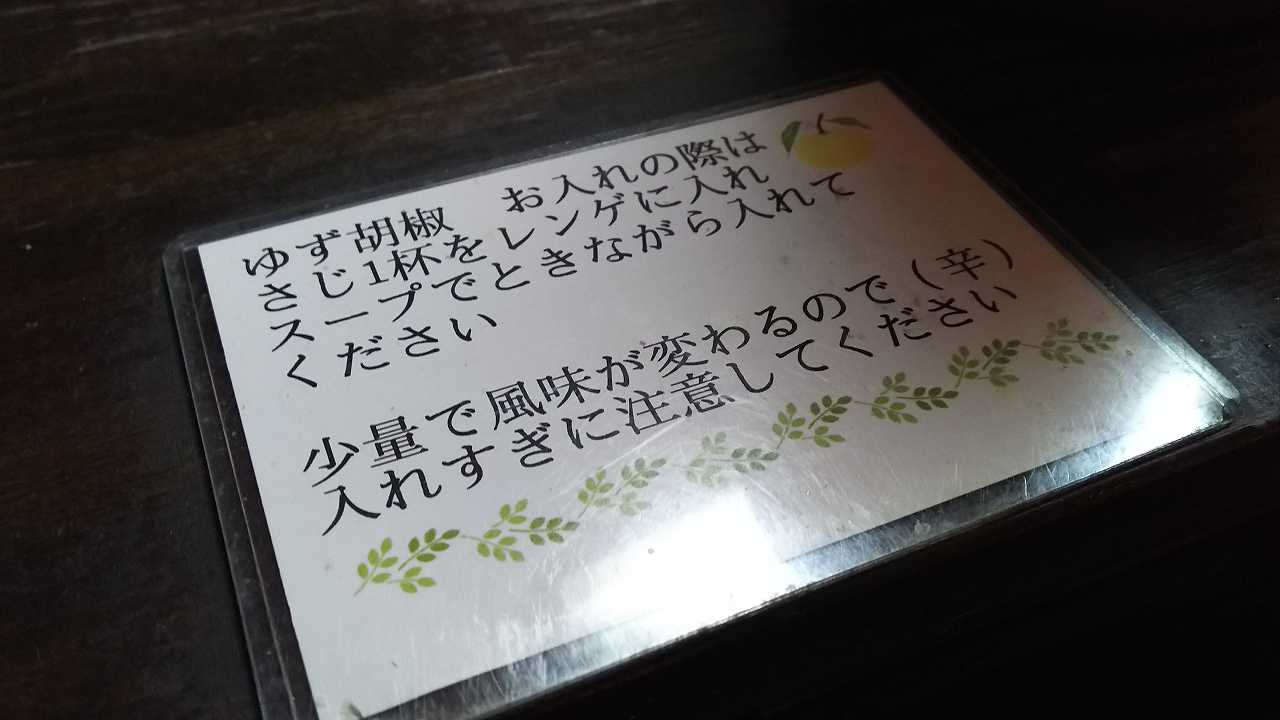 ゆず胡椒　お入れの際は
さじ1杯をレンゲに入れ
スープでときながら入れて
ください
少量で風味が変わるので(辛)
入れすぎに注意してください